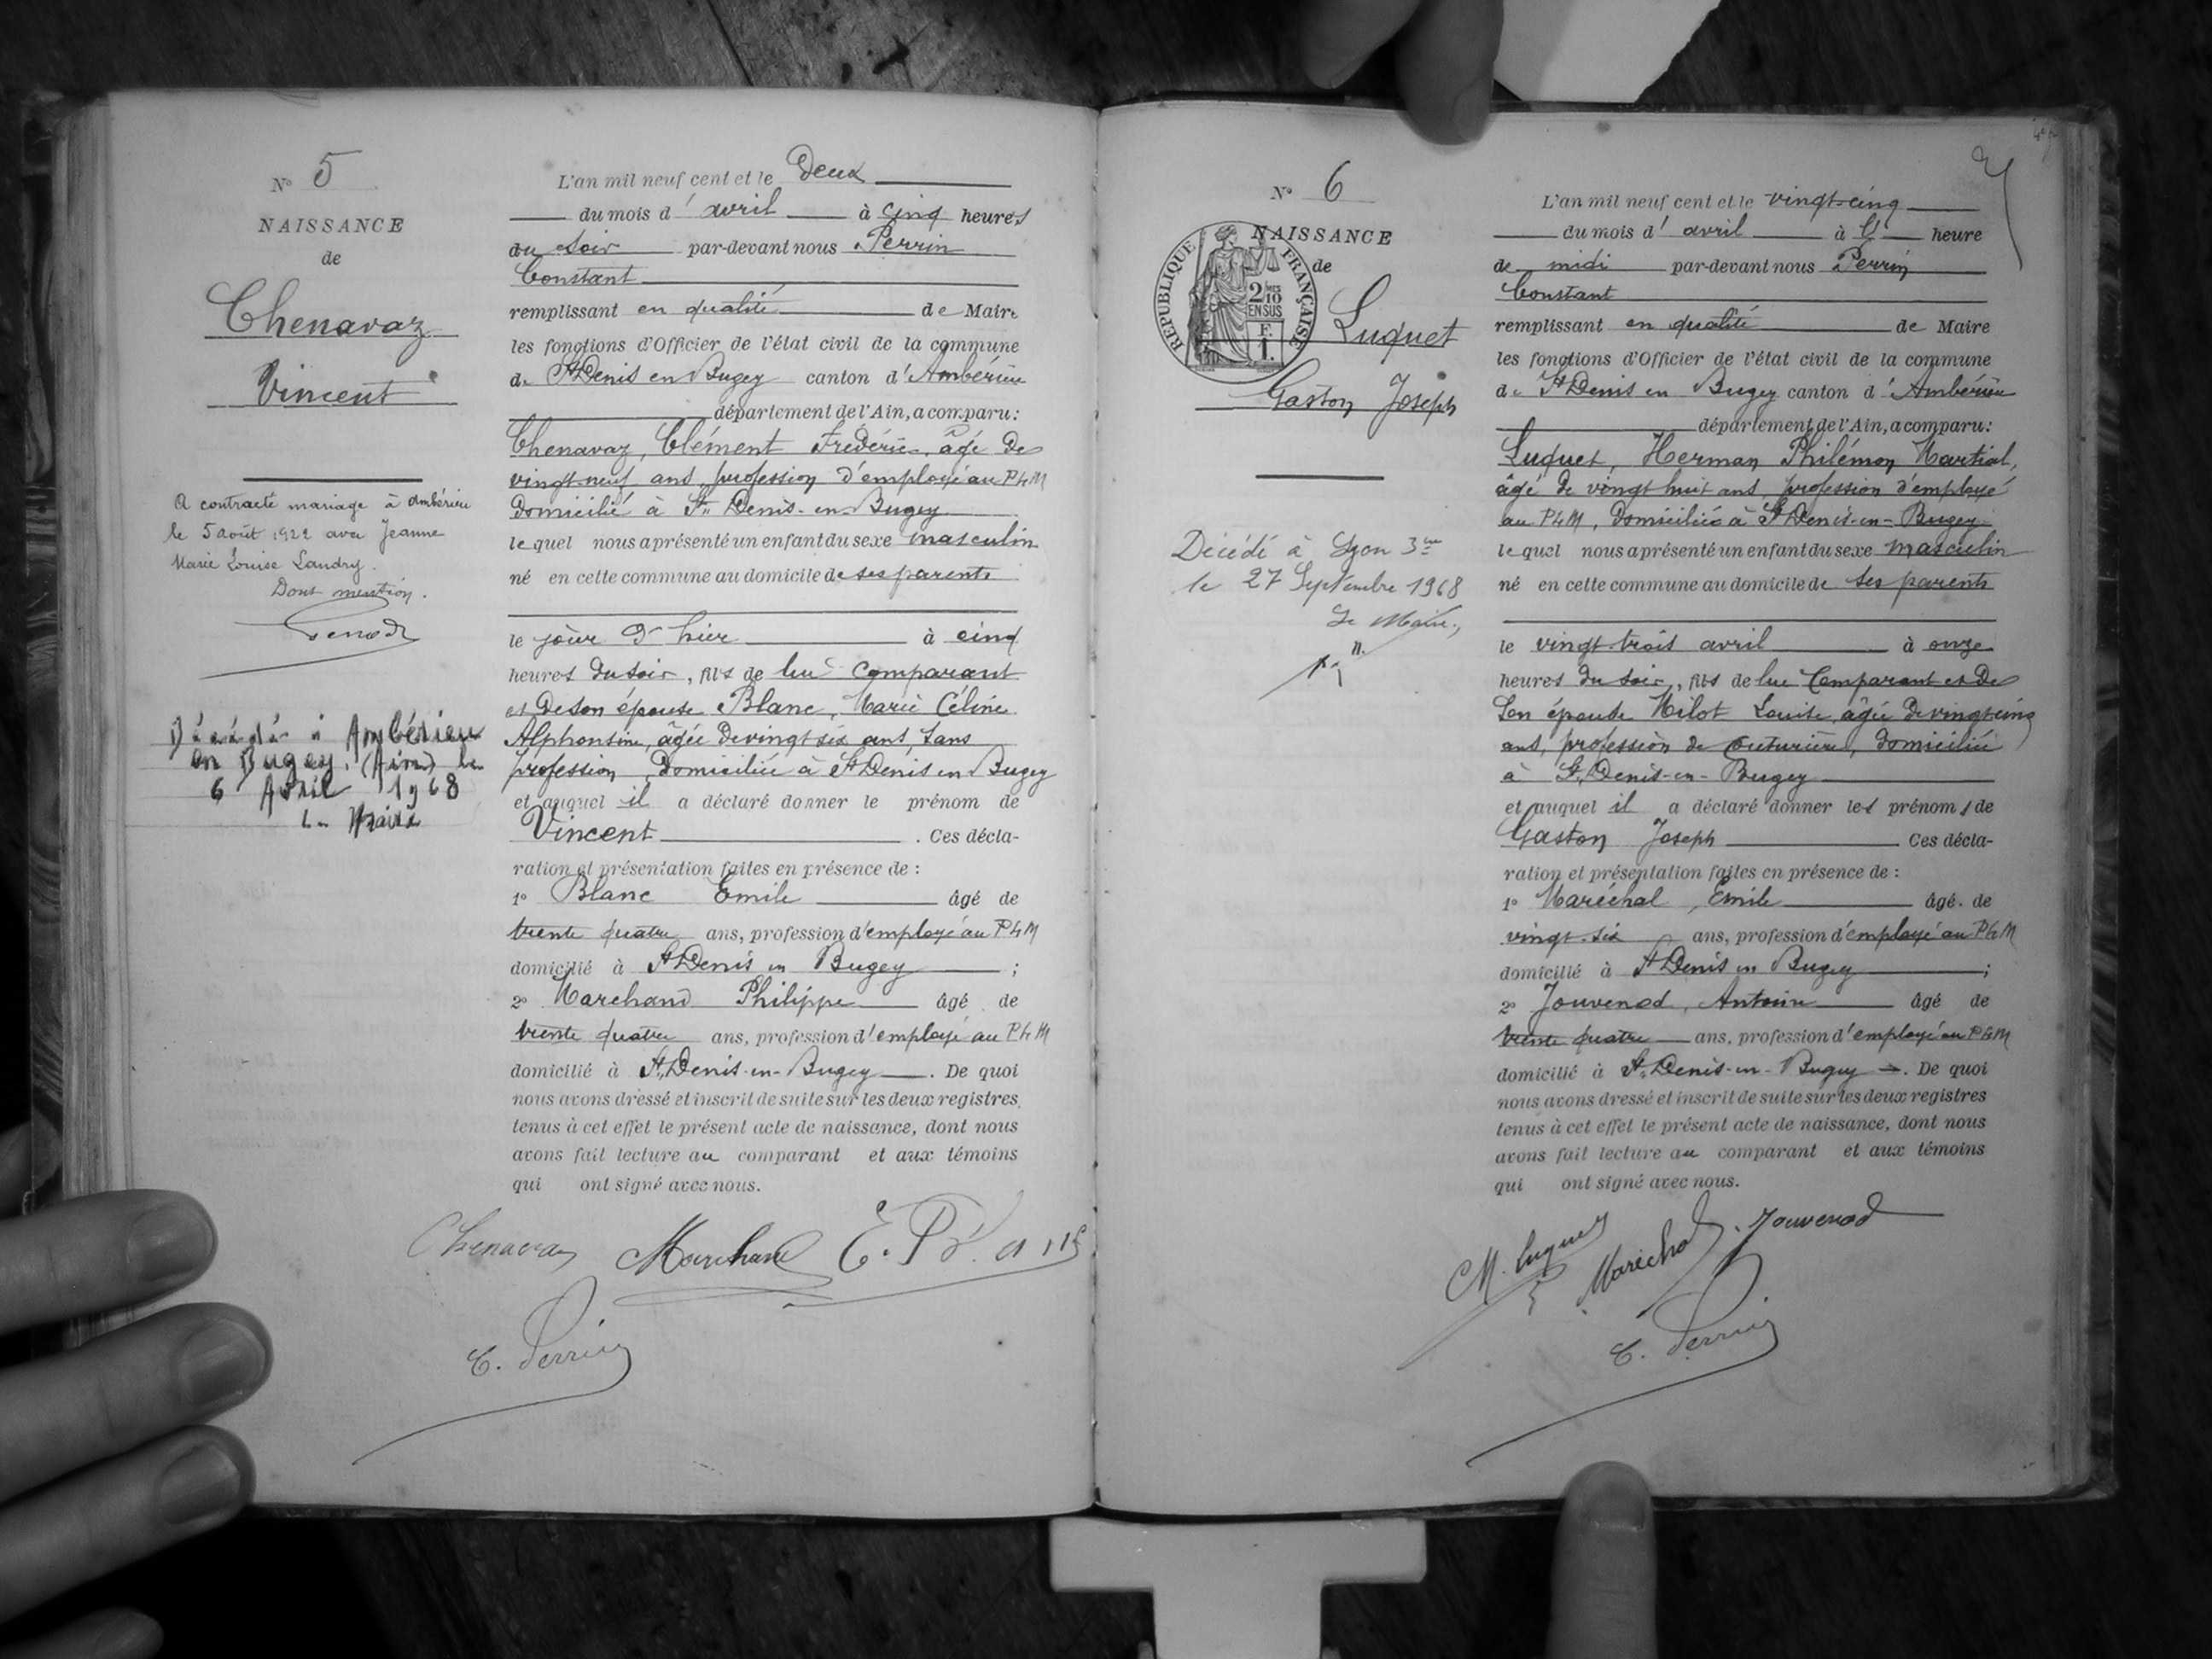 N° 5
NAISSANCE
de
Chenavaz
Vincent
A contracté mariage à Ambérieu
le 5 août 1922 avec Jeanne
Marie Louise Landry.
Dont mention.
Décédé à Ambérieu
en Bugey (Ain) le
6 Avril 1968
Le Maire
L'an mil neuf cent et le Deux
du mois d'avril à cinq heures
du soir par-devant nous Perrin
Constant
remplissant en qualité de Maire
les fonctions d'Officier de l'état civil de la commune
de St Denis en Bugey canton d'Ambérieu
département de l'Ain, a comparu:
Chenavaz, Clément Frédéric, âgé de
vingt neuf ans, profession d'employé au PLM
domicilié à St Denis-en-Bugey
lequel nous a présenté un enfant du sexe masculin
né en cette commune au domicile de ses parents
le jour d'hier à cinq
heures du soir, fils de lui comparant
et de son épouse Blanc, Marie Céline
Alphonsine, âgée de vingt six ans, sans
profession, domiciliée à St Denis en Bugey
et auquel il a déclaré donner le prénom de
Vincent. Ces décla-
ration et présentation faites en présence de :
1° Blanc Emile âgé de
trente quatre ans, profession d'employé au PLM
domicilié à St Denis en Bugey ;
2° Marchand Philippe âgé de
trente quatre ans, profession d'employé au PLM
domicilié à St Denis-en-Bugey. De quoi
nous avons dressé et inscrit de suite sur les deux registres,
tenus à cet effet le présent acte de naissance, dont nous
avons fait lecture au comparant et aux témoins
qui ont signé avec nous.
Chenavaz Marchand
C. Perrin
N° 6
NAISSANCE
de
REPUBLIQUE FRANÇAISE
2/10 MES
EN SUS
F.
1.
Luquet
Gaston Joseph
Décédé à Lyon 3me
le 27 Septembre 1968
Le Maire,
L'an mil neuf cent et le vingt-cinq
du mois d'avril à heure
de midi par-devant nous Perrin
Constant
remplissant en qualité de Maire
les fonctions d'Officier de l'état civil de la commune
de St Denis en Bugey canton d'Ambérieu
département de l'Ain, a comparu:
Luquet, Herman Philémon Martial,
âgé de vingt huit ans, profession d'employé
au PLM, domicilié à St Denis-en-Bugey
lequel nous a présenté un enfant du sexe masculin
né en cette commune au domicile de ses parents
le vingt-trois avril à onze
heures du soir, fils de lui Comparant et de
Son épouse Milot Louise, âgée de vingt-cinq
ans, profession de couturière, domiciliée
à St Denis-en-Bugey
et auquel il a déclaré donner les prénoms de
Gaston Joseph Ces décla-
ration et présentation faites en présence de :
1° Maréchal, Emile âgé de
vingt-six ans, profession d'employé au PLM
domicilié à St Denis en Bugey ;
2° Jouvenod, Antoine âgé de
trente quatre ans, profession d'employé au PLM
domicilié à St Denis-en-Bugey. De quoi
nous avons dressé et inscrit de suite sur les deux registres
tenus à cet effet le présent acte de naissance, dont nous
avons fait lecture au comparant et aux témoins
qui ont signé avec nous.
M. Luquet Maréchal Jouvenod
C. Perrin